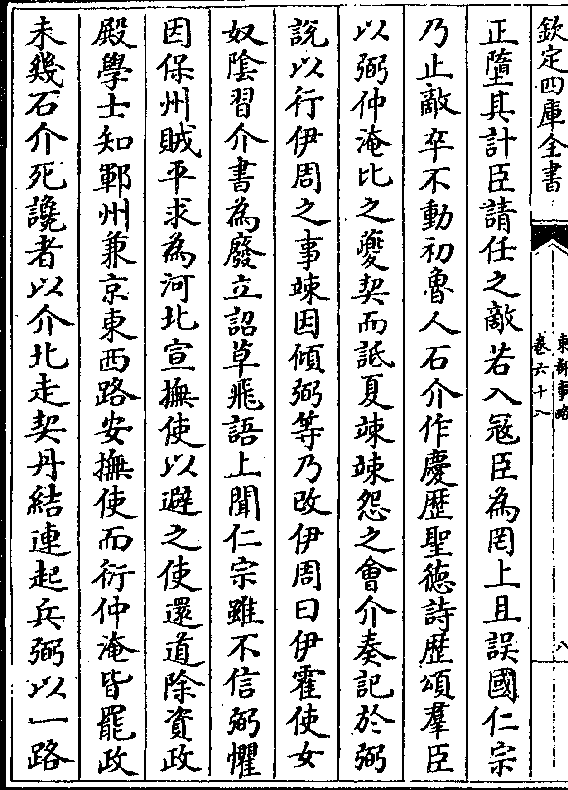 欽定四庫全書
東都事略
卷六十八
八
正墮其計臣請任之敵若入冦臣為罔上且誤國仁宗
乃止敵卒不動初魯人石介作慶歴聖德詩歴頌羣臣
以弼仲淹比之夔契而詆夏竦竦怨之會介奏記於弼
說以行伊周之事竦因傾弼等乃改伊周曰伊霍使女
奴陰習介書為廢立詔草飛語上聞仁宗雖不信弼懼
因保州賊平求為河北宣撫使以避之使還道除資政
殿學士知鄆州兼京東西路安撫使而衍仲淹皆罷政
未幾石介死讒者以介北走契丹結連起兵弼以一路